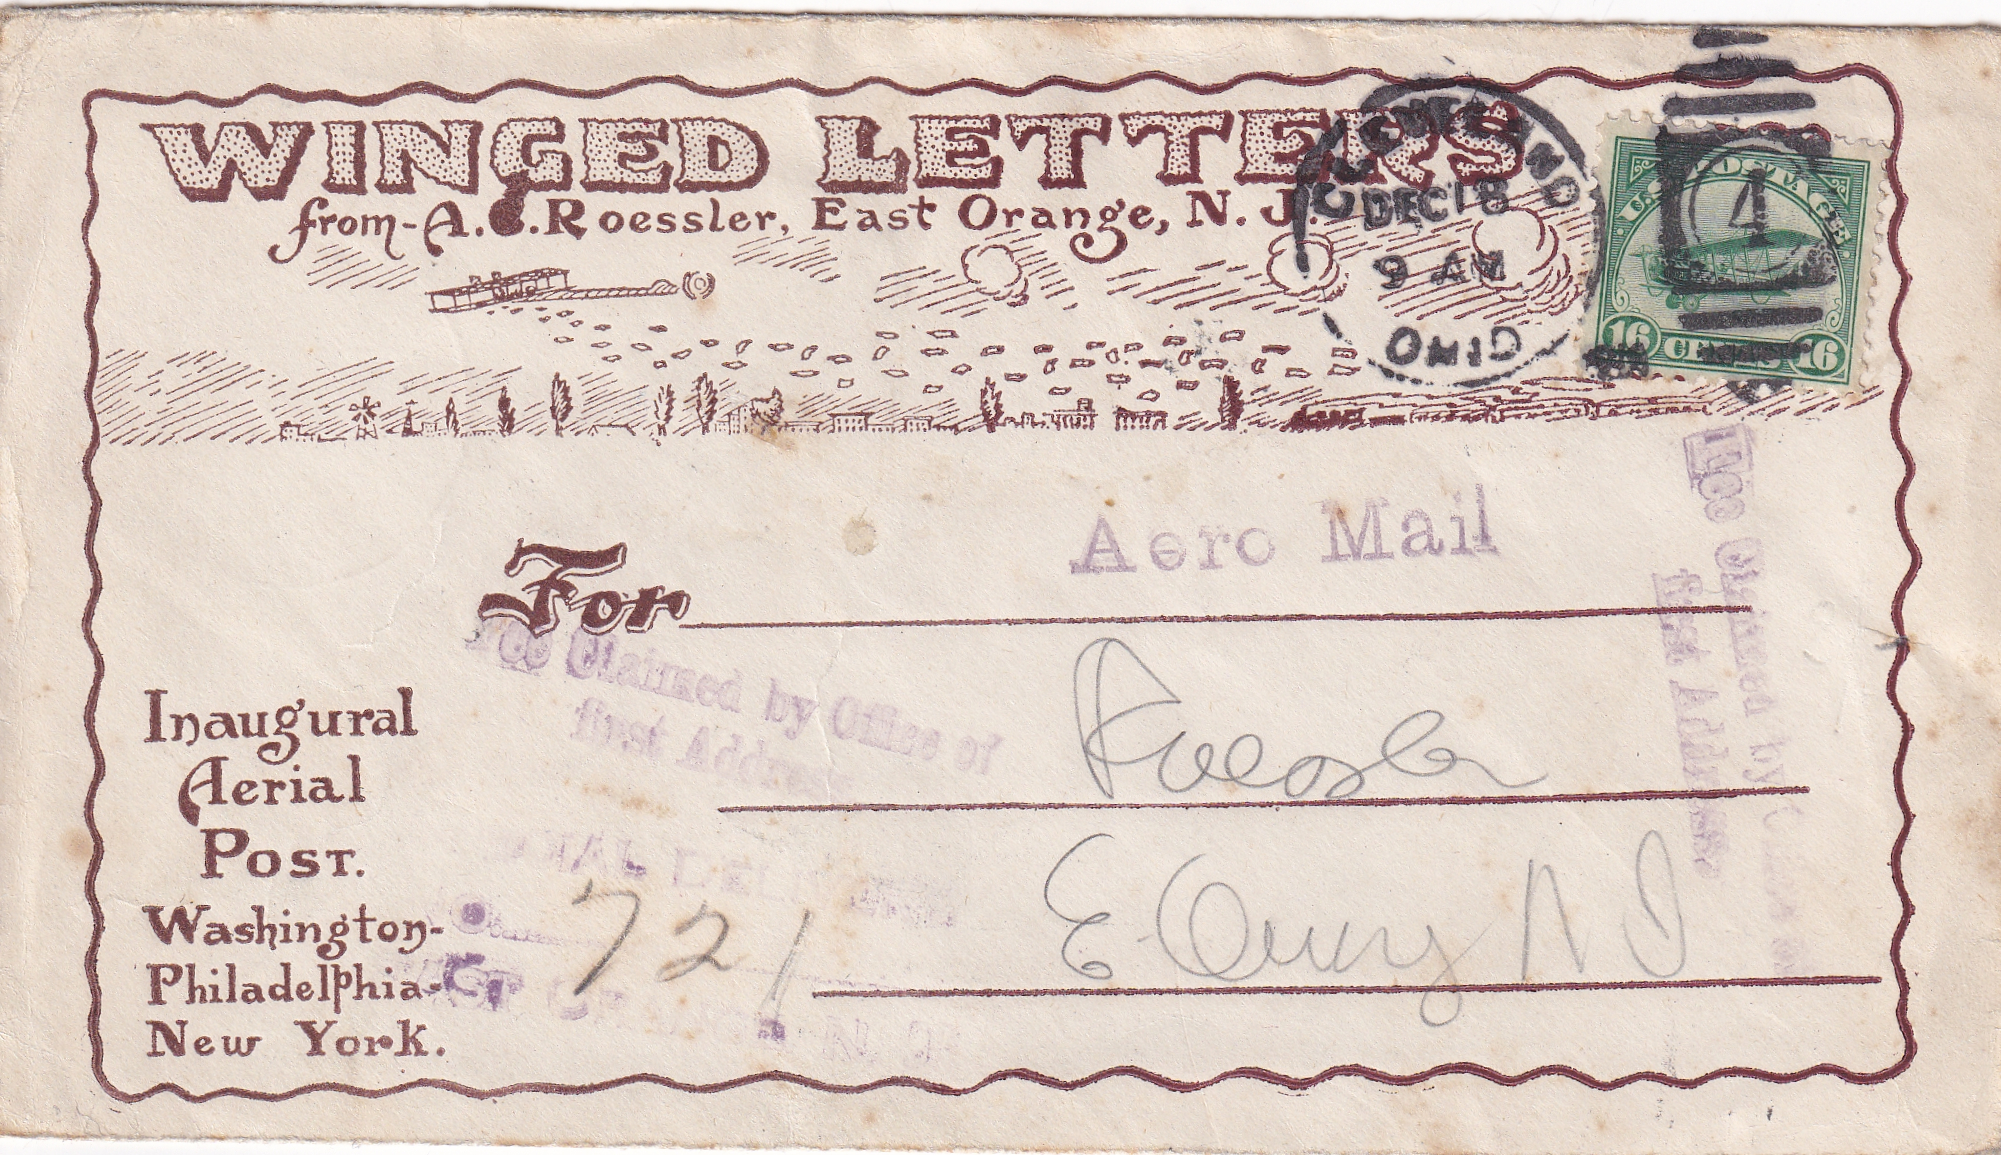 WINGED LETTERS
from-A.C.Roessler, East Orange, N. J.
CLEVELAND
DEC 18
9 AM
OHIO
U.S. POSTAGE
4
16 CENTS 16
Aero Mail
For
Fee Claimed by Office of
first Address
Fee Claimed by Office of
first Address
Roessler
E Orang N J
Inaugural
Aerial
Post.
Washington-
Philadelphia-
New York.
721